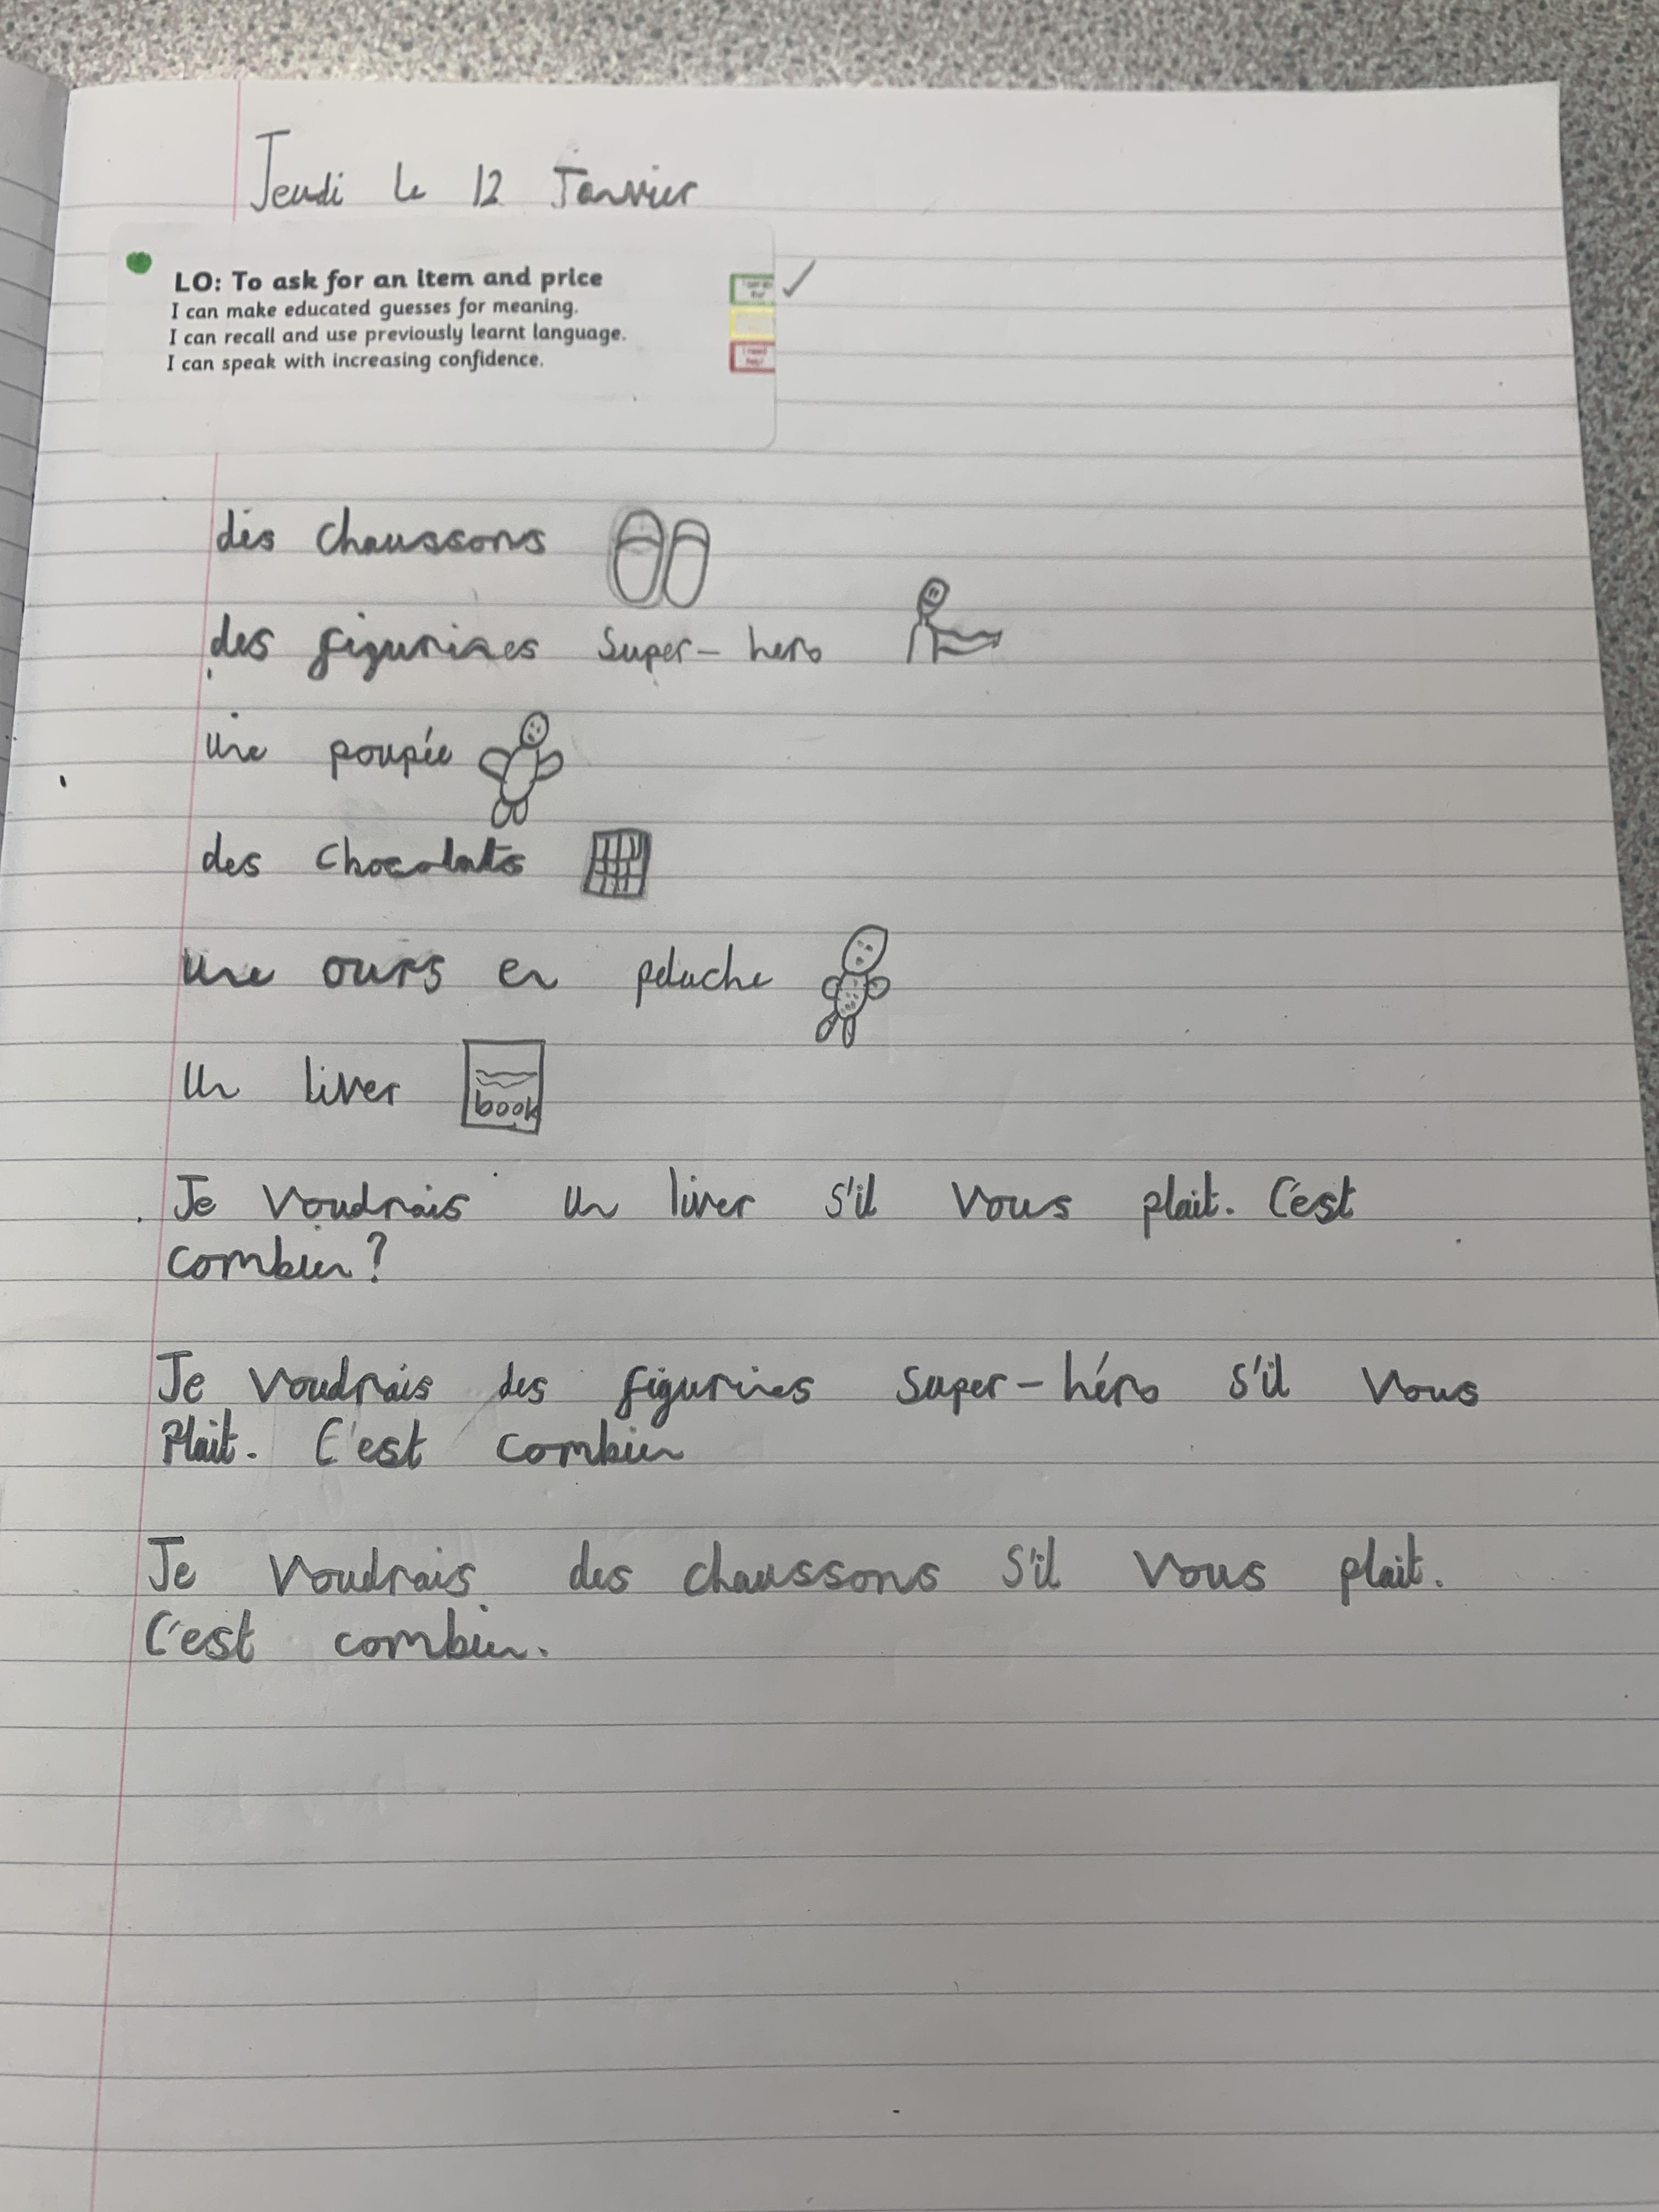 Jeudi le 12 Janvier
LO: To ask for an item and price
I can make educated guesses for meaning.
I can recall and use previously learnt language.
I can speak with increasing confidence.
I need help!
des chaussons
des figurines Super-hero
une poupée
des chocolats
une ours en peluche
un liver
book
Je voudrais un liver s'il vous plait. C'est
combien?
Je voudrais des figurines super-héro s'il vous
Plait. C'est combien
Je voudrais des chaussons s'il vous plait.
C'est combien.